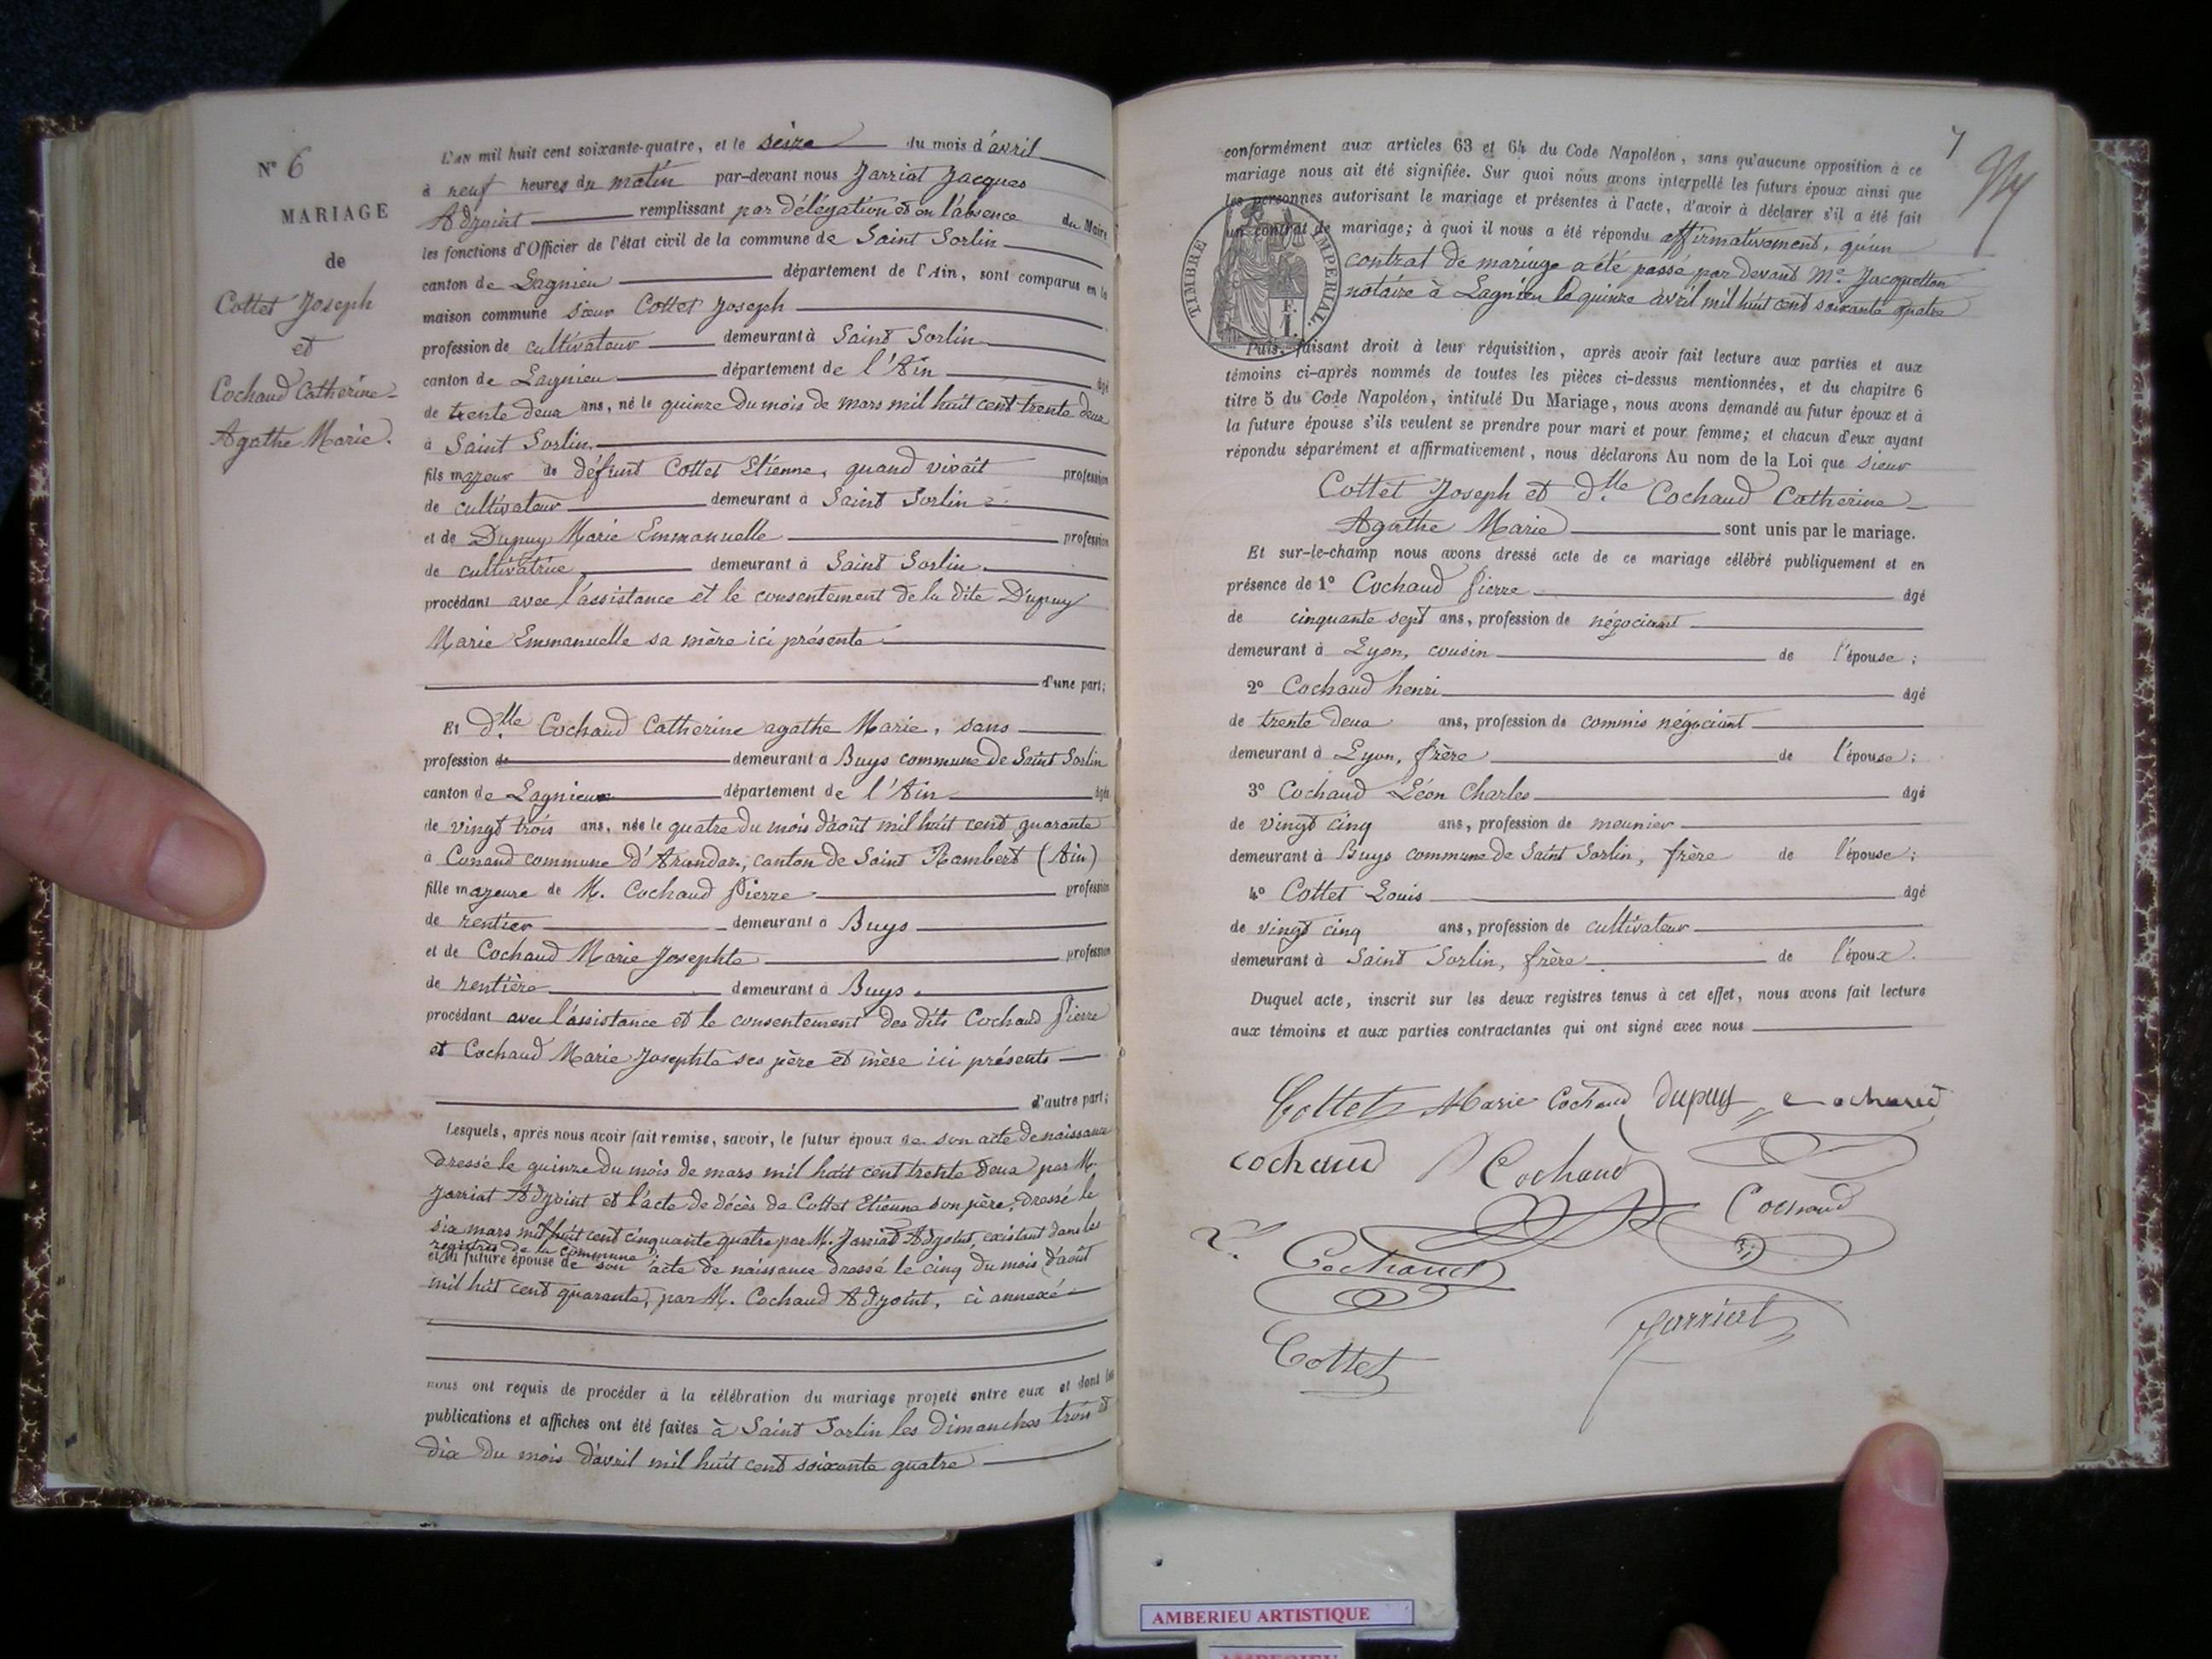 N° 6
MARIAGE
de
Cottet Joseph
et
Cochaud Catherine-
Agathe Marie.
L'AN mil huit cent soixante-quatre, et le seize du mois d'avril
à neuf heures du matin par-devant nous Jarriat Jacques
Adjoint remplissant par délégation et en l'absence du Maire
les fonctions d'Officier de l'état civil de la commune de Saint Sorlin
canton de Lagnieu département de l'Ain, sont comparus en la
maison commune sieur Cottet Joseph
profession de cultivateur demeurant à Saint Sorlin
canton de Lagnieu département de l'Ain âgé
de trente deux ans, né le quinze du mois de mars mil huit cent trente deux
à Saint Sorlin.
fils majeur de défunt Cottet Etienne, quand vivait profession
de cultivateur demeurant à Saint Sorlin
et de Dupuy Marie Emmanuelle profession
de cultivatrice demeurant à Saint Sorlin
procédant avec l'assistance et le consentement de la dite Dupuy
Marie Emmanuelle sa mère ici présente
d'une part;
Et dlle Cochaud Catherine agathe Marie, sans
profession de demeurant à Buys commune de Saint Sorlin
canton de Lagnieu département de l'Ain âgée
de vingt trois ans, née le quatre du mois d'août mil huit cent quarante
à Conand commune d'Arandas, canton de Saint Rambert (Ain)
fille majeure de M. Cochaud Pierre profession
de rentier demeurant à Buys
et de Cochaud Marie Josephte profession
de rentière demeurant à Buys
procédant avec l'assistance et le consentement des dits Cochaud Pierre
et Cochaud Marie Josephte ses père et mère ici présents
d'autre part;
Lesquels, après nous avoir fait remise, savoir, le futur époux de son acte de naissance
dressé le quinze du mois de mars mil huit cent trente deux par M.
Jarriat Adjoint et l'acte de décès de Cottet Etienne son père, dressé le
six mars mil huit cent cinquante quatre par M. Jarriat Adjoint, existant dans les
registres de la commune;
et la future épouse de son acte de naissance dressé le cinq du mois d'août
mil huit cent quarante, par M. Cochaud Adjoint, ci annexé
nous ont requis de procéder à la célébration du mariage projeté entre eux et dont les
publications et affiches ont été faites à Saint Sorlin les dimanches trois et
dix du mois d'avril mil huit cent soixante quatre
7
conformément aux articles 63 et 64 du Code Napoléon, sans qu'aucune opposition à ce
mariage nous ait été signifiée. Sur quoi nous avons interpellé les futurs époux ainsi que
les personnes autorisant le mariage et présentes à l'acte, d'avoir à déclarer s'il a été fait
un contrat de mariage; à quoi il nous a été répondu affirmativement, qu'un
contrat de mariage a été passé par devant Me Jacquetton
notaire à Lagnieu le quinze avril mil huit cent soixante quatre
TIMBRE IMPERIAL.
F.
1.
Puis, faisant droit à leur réquisition, après avoir fait lecture aux parties et aux
témoins ci-après nommés de toutes les pièces ci-dessus mentionnées, et du chapitre 6
titre 5 du Code Napoléon, intitulé Du Mariage, nous avons demandé au futur époux et à
la future épouse s'ils veulent se prendre pour mari et pour femme; et chacun d'eux ayant
répondu séparément et affirmativement, nous déclarons Au nom de la Loi que sieur
Cottet Joseph et dlle Cochaud Catherine-
Agathe Marie sont unis par le mariage.
Et sur-le-champ nous avons dressé acte de ce mariage célébré publiquement et en
présence de 1° Cochaud Pierre âgé
de cinquante sept ans, profession de négociant
demeurant à Lyon, cousin de l'épouse;
2° Cochaud henri âgé
de trente deux ans, profession de commis négociant
demeurant à Lyon, frère de l'épouse;
3° Cochaud Léon Charles âgé
de vingt cinq ans, profession de meunier
demeurant à Buys commune de Saint Sorlin, frère de l'épouse;
4° Cottet Louis âgé
de vingt cinq ans, profession de cultivateur
demeurant à Saint Sorlin, frère de l'époux.
Duquel acte, inscrit sur les deux registres tenus à cet effet, nous avons fait lecture
aux témoins et aux parties contractantes qui ont signé avec nous
Cottet Marie Cochaud Dupuy cochaud
cochaud Cochaud
Cochaud
Cochaud
Jarriat
Cottet
AMBERIEU ARTISTIQUE
AMBERIEU